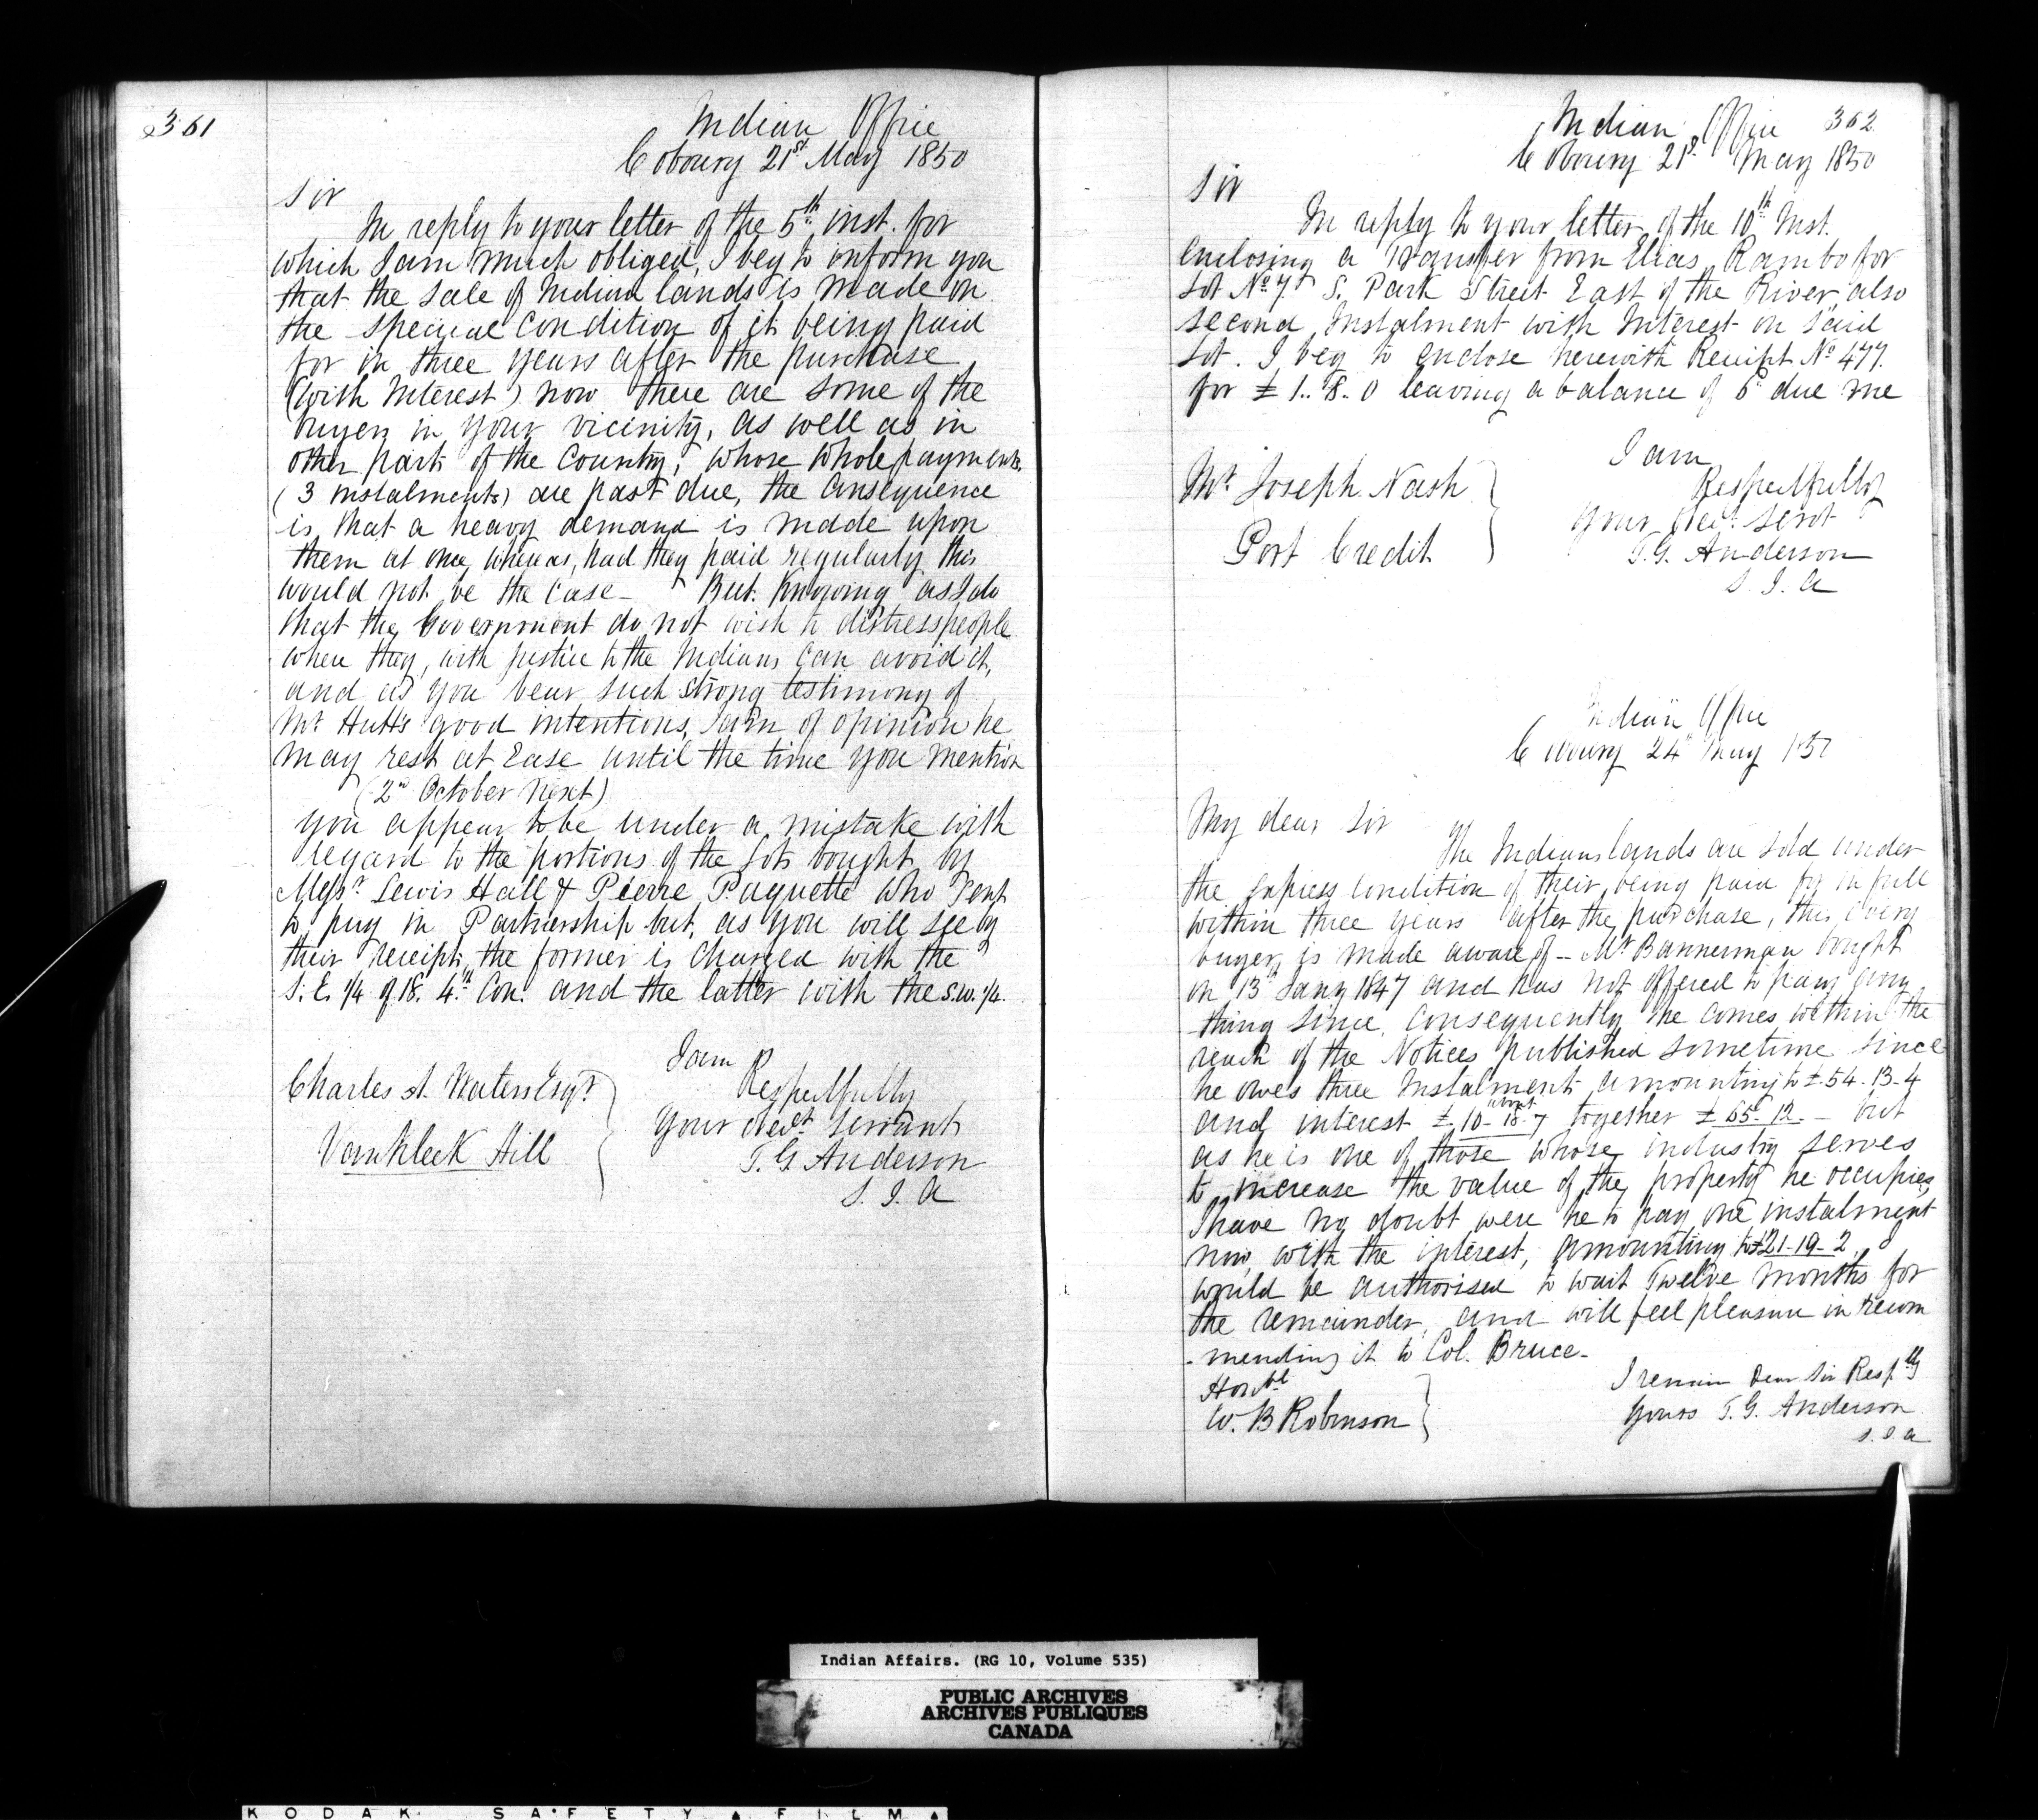 361
Indian Office
Cobourg 21st May 1850
Sir
In reply to your letter of the 5th inst. for
which I am much obliged, I beg to inform you
that the sale of Indian lands is made on
the special condition of it being paid
for in three years after the purchase
(with Interest) now there are some of the
buyers in your vicinity, as well as in
other parts of the Country, whose whole payments
(3 instalments) are past due, the consequence
is, that a heavy demand is made upon
them at once, whereas, had they paid regularly this
would not be the case - But knowing as I do
that the Government do not wish to distress people
when they, with justice to the Indians can avoid it,
and as you bear such strong testimony of
Mr Hutt's good intentions, I am of opinion he
may rest at Ease until the time you mention
(2nd October next)
you appear to be under a mistake with
regard to the portions of the lots bought by
Messrs Lewis Hall & Pierre Paquette who
to pay in Partnership but, as you will see by
their receipts, the former is charged with the
S.E. 1/4 of 18. 4th Con. and the latter with the S.W. 1/4.
I am
Respectfully
Your Obedt Servant
T. G Anderson
S. I. A
Charles A. Waters Esqr
Vankleek Hill
362
Indian Office
Cobourg 21st May 1850
Sir
In reply to your letter of the 10th Inst.
enclosing a Transfer from Elias Rambo for
Lot No 7 S. Park Street East of the River, also
second Instalment with Interest on said
Lot. I beg to enclose herewith Receipt No 477.
for £ 1.. 8. 0 leaving a balance of 6d due me
I am
Respectfully
Your Obedt Servt
T. G. Anderson
S. I. A
Mr Joseph Nash
Port Credit
Indian Office
Cobourg 24th May 1850
My dear Sir
The Indians lands are sold under
the express condition of their being paid for in full
within three years after the purchase, this every
buyer is made aware of -- Mr Bannerman bought
on 13th Jany 1847 and has not offered to pay any
thing since, consequently he comes within the
reach of the Notices published sometime since
he owes three Instalments amounting to £54-13-4
and interest £ 10-18-7 about together £ 65-12- - but
as he is one of those whose industry serves
to increase the value of the property he occupies
I have no doubt were he to pay one instalment
now, with the interest, amounting to £21-19-2 I
would be authorised to wait Twelve months for
the remainder, and will feel pleasure in recom
-mending it to Col. Bruce -
I remain Dear Sir Respfly
Yours T. G. Anderson
S. I. A
Honble
W. B Robinson
Indian Affairs. (RG 10, Volume 535)
PUBLIC ARCHIVES
ARCHIVES PUBLIQUES
CANADA
KODAK SAFETY FILM